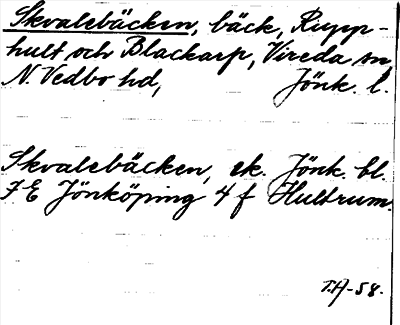 Skvalebäcken, bäck, Rupp-
hult och Blackarp, Vireda sn,
N. Vedbo hd, Jönk. l.
Skvalebäcken, ek. Jönk. bl.
7 E Jönköping 4 f Hultrum.
T.A-58.